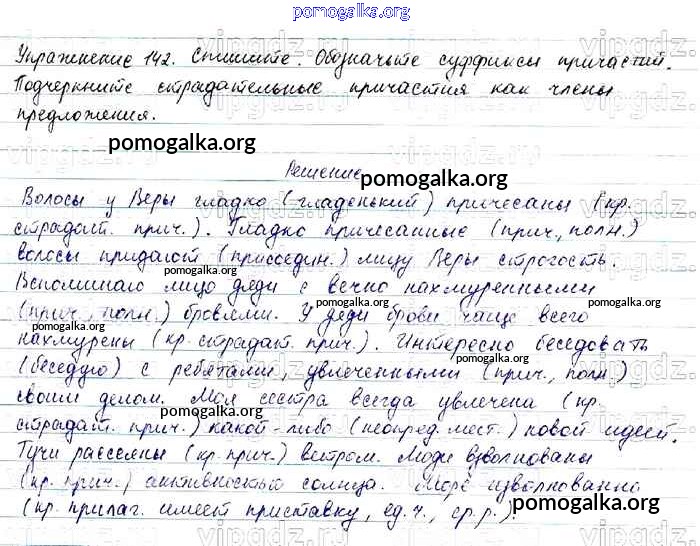 pomogalka.org
Упражнение 142. Спишите. Обозначьте суффиксы причастий.
Подчеркните страдательные причастия как члены
предложения.
pomogalka.org
Решение
pomogalka.org
Волосы у Веры гладко (гладенький) причесаны (кр.
страдат. прич.). Гладко причесанные (прич., полн.)
волосы придают (присоедин.) лицу Веры строгость.
pomogalka.org
Вспоминаю лицо дяди с вечно нахмуренными
(прич., полн.) бровями. У дяди брови чаще всего
pomogalka.org pomogalka.org pomogalka.org
нахмурены (кр. страдат. прич.). Интересно беседовать
(беседую) с ребятами, увлеченными (прич., полн.)
pomogalka.org
своим делом. Моя сестра всегда увлечена (кр.
страдат. прич.) какой-либо (неопред. мест.) новой идеей.
pomogalka.org
Тучи рассеяны (кр. прич.) ветром. Люди взволнованы
(кр. прич.) активностью солнца. Море взволнованно
(кр. прилаг. имеет приставку, ед. ч., ср. р.).
pomogalka.org pomogalka.org
vipgdz.ru